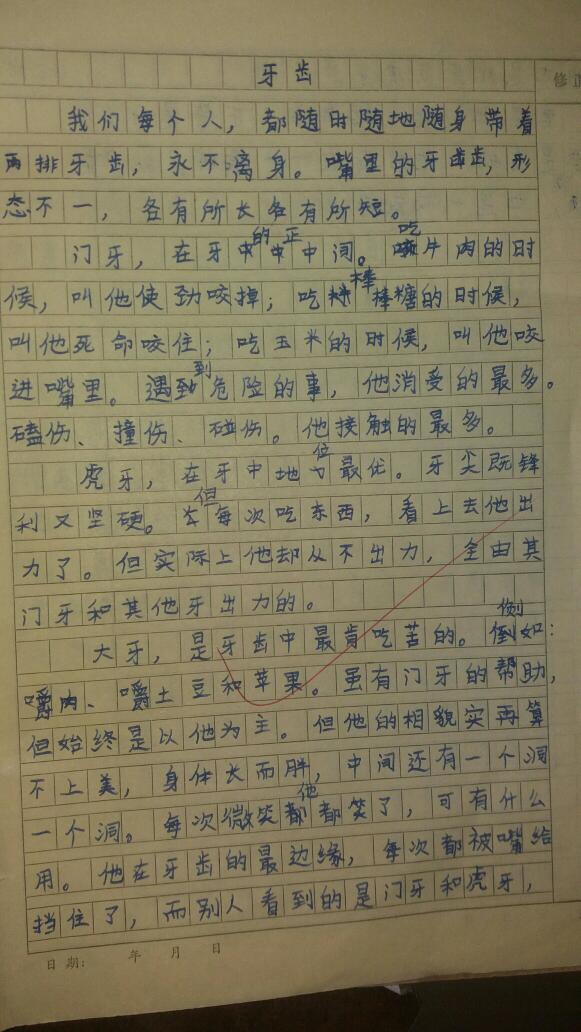 牙齿
修正
我们每个人，都随时随地随身带着
两排牙齿，永不离身。嘴里的牙齿，形
态不一，各有所长各有所短。
门牙，在牙的正中间。吃片肉的时
候，叫他使劲咬掉；吃棒棒糖的时候，
叫他死命咬住；吃玉米的时候，叫他咬
进嘴里。遇到危险的事，他消受的最多。
磕伤、撞伤、碰伤。他接触的最多。
虎牙，在牙中地位最优。牙尖既锋
利又坚硬。但每次吃东西，看上去他出
力了。但实际上他却从不出力，全由其
门牙和其他牙出力的。
大牙，是牙齿中最肯吃苦的。例如：
嚼肉、嚼土豆和苹果。虽有门牙的帮助，
但始终是以他为主。但他的相貌实再算
不上美，身体长而胖，中间还有一个洞
一个洞。每次微笑他都笑了，可有什么
用。他在牙齿的最边缘，每次都被嘴给
挡住了，而别人看到的是门牙和虎牙，
日期： 年 月 日